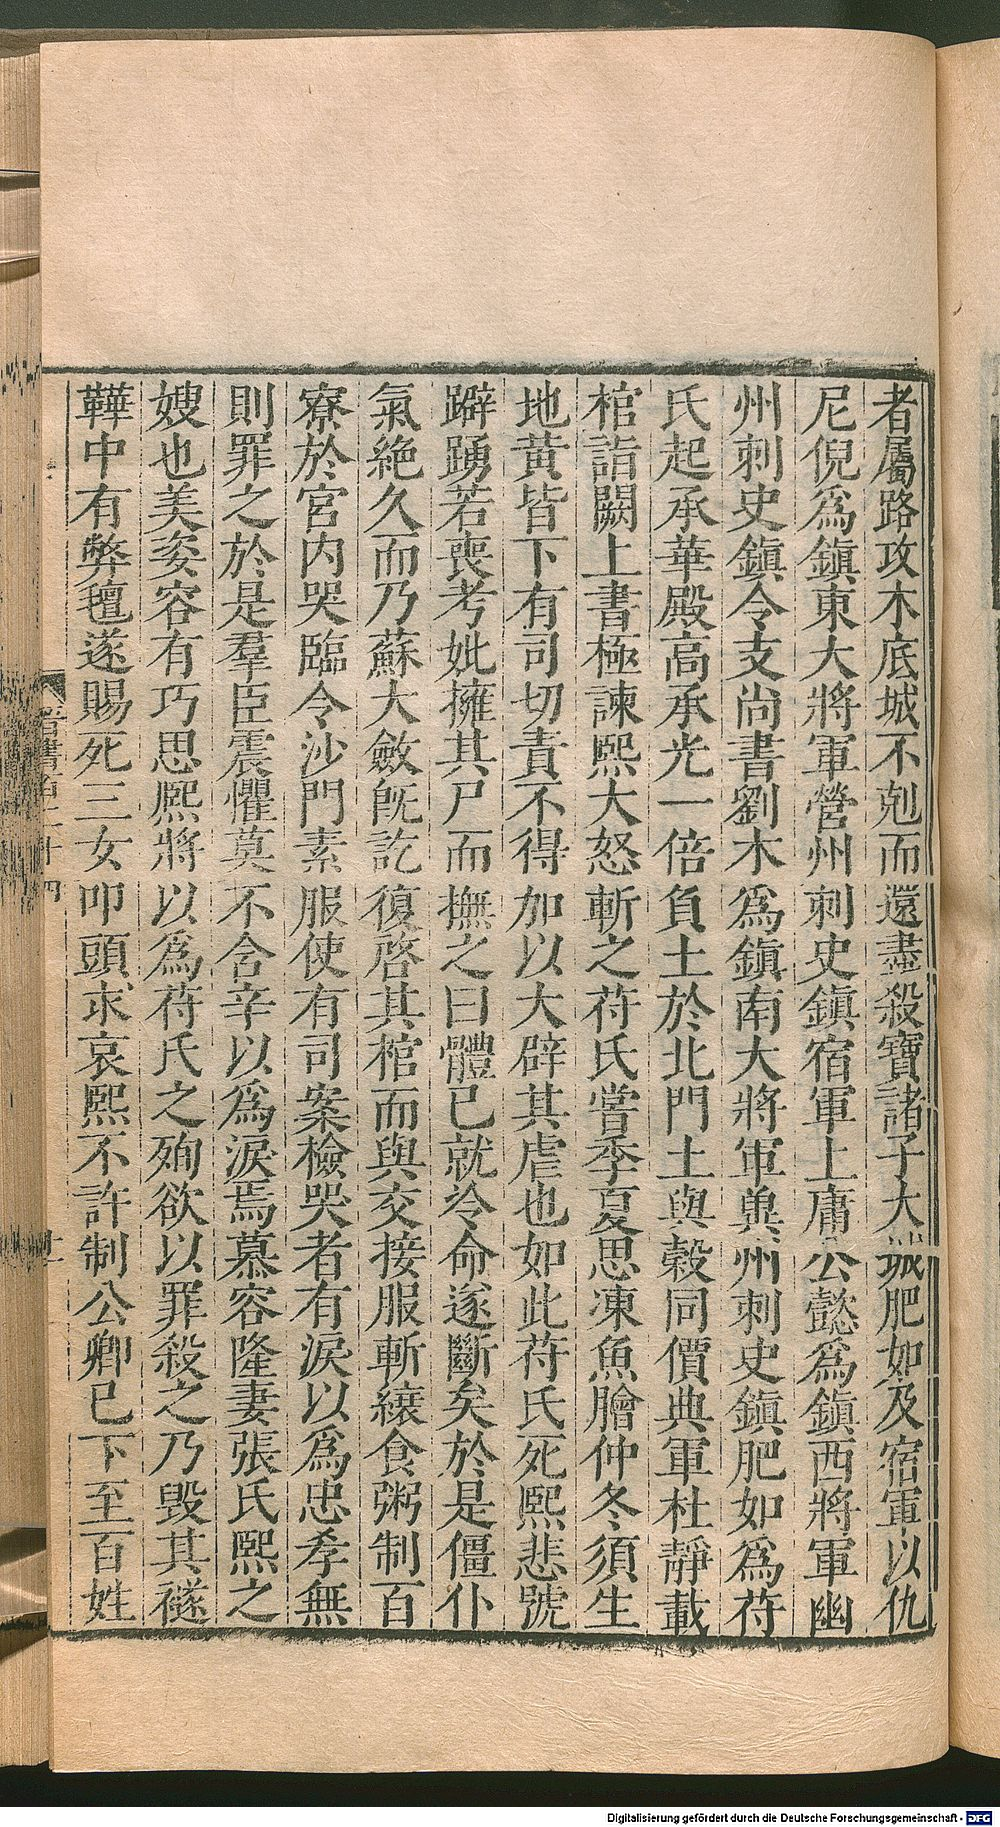 者屬路攻木底城不剋而還盡殺寶諸子大城肥如及宿軍以仇
尼倪爲鎮東大將軍營州刺史鎮宿軍上庸公懿爲鎮西將軍幽
州刺史鎮令支尚書劉木爲鎮南大將軍兾州刺史鎮肥如爲苻
氏起承華殿高承光一倍負土於北門土與穀同價典軍杜靜載
棺詣闕上書極諫熙大怒斬之苻氏嘗季夏思凍魚膾仲冬須生
地黃皆下有司切責不得加以大辟其虐也如此苻氏死熙悲號
躃踴若喪考妣擁其尸而撫之曰體已就冷命遂斷矣於是僵仆
氣絶久而乃蘇大斂旣訖復啓其棺而與交接服斬縗食粥制百
寮於宮内哭臨令沙門素服使有司案檢哭者有淚以爲忠孝無
則罪之於是羣臣震懼莫不含辛以爲淚焉慕容隆妻張氏熙之
嫂也美姿容有巧思熈將以爲苻氏之殉欲以罪殺之乃毀其襚
鞾中有弊氊遂賜死三女叩頭求哀熙不許制公卿已下至百姓
晉書百二十四
十二
Digitalisierung gefördert durch die Deutsche Forschungsgemeinschaft - DFG